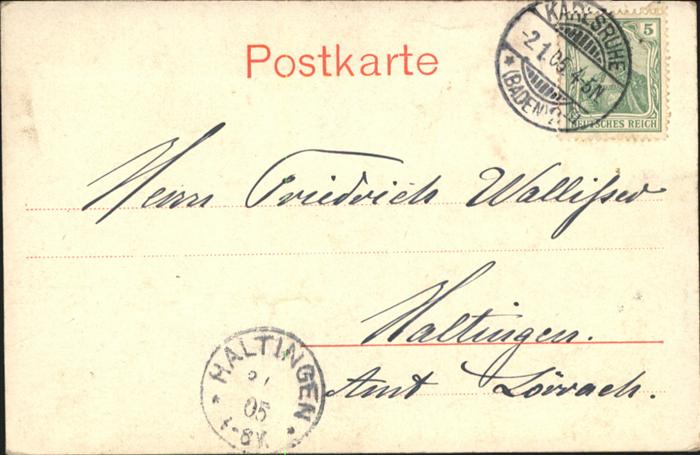 Postkarte
KARLSRUHE
-2.1.05. 4-5N
* (BADEN)
5
DEUTSCHES REICH
Herrn Friedrich Wallißer
Haltingen.
Amt Lörrach.
HALTINGEN
05